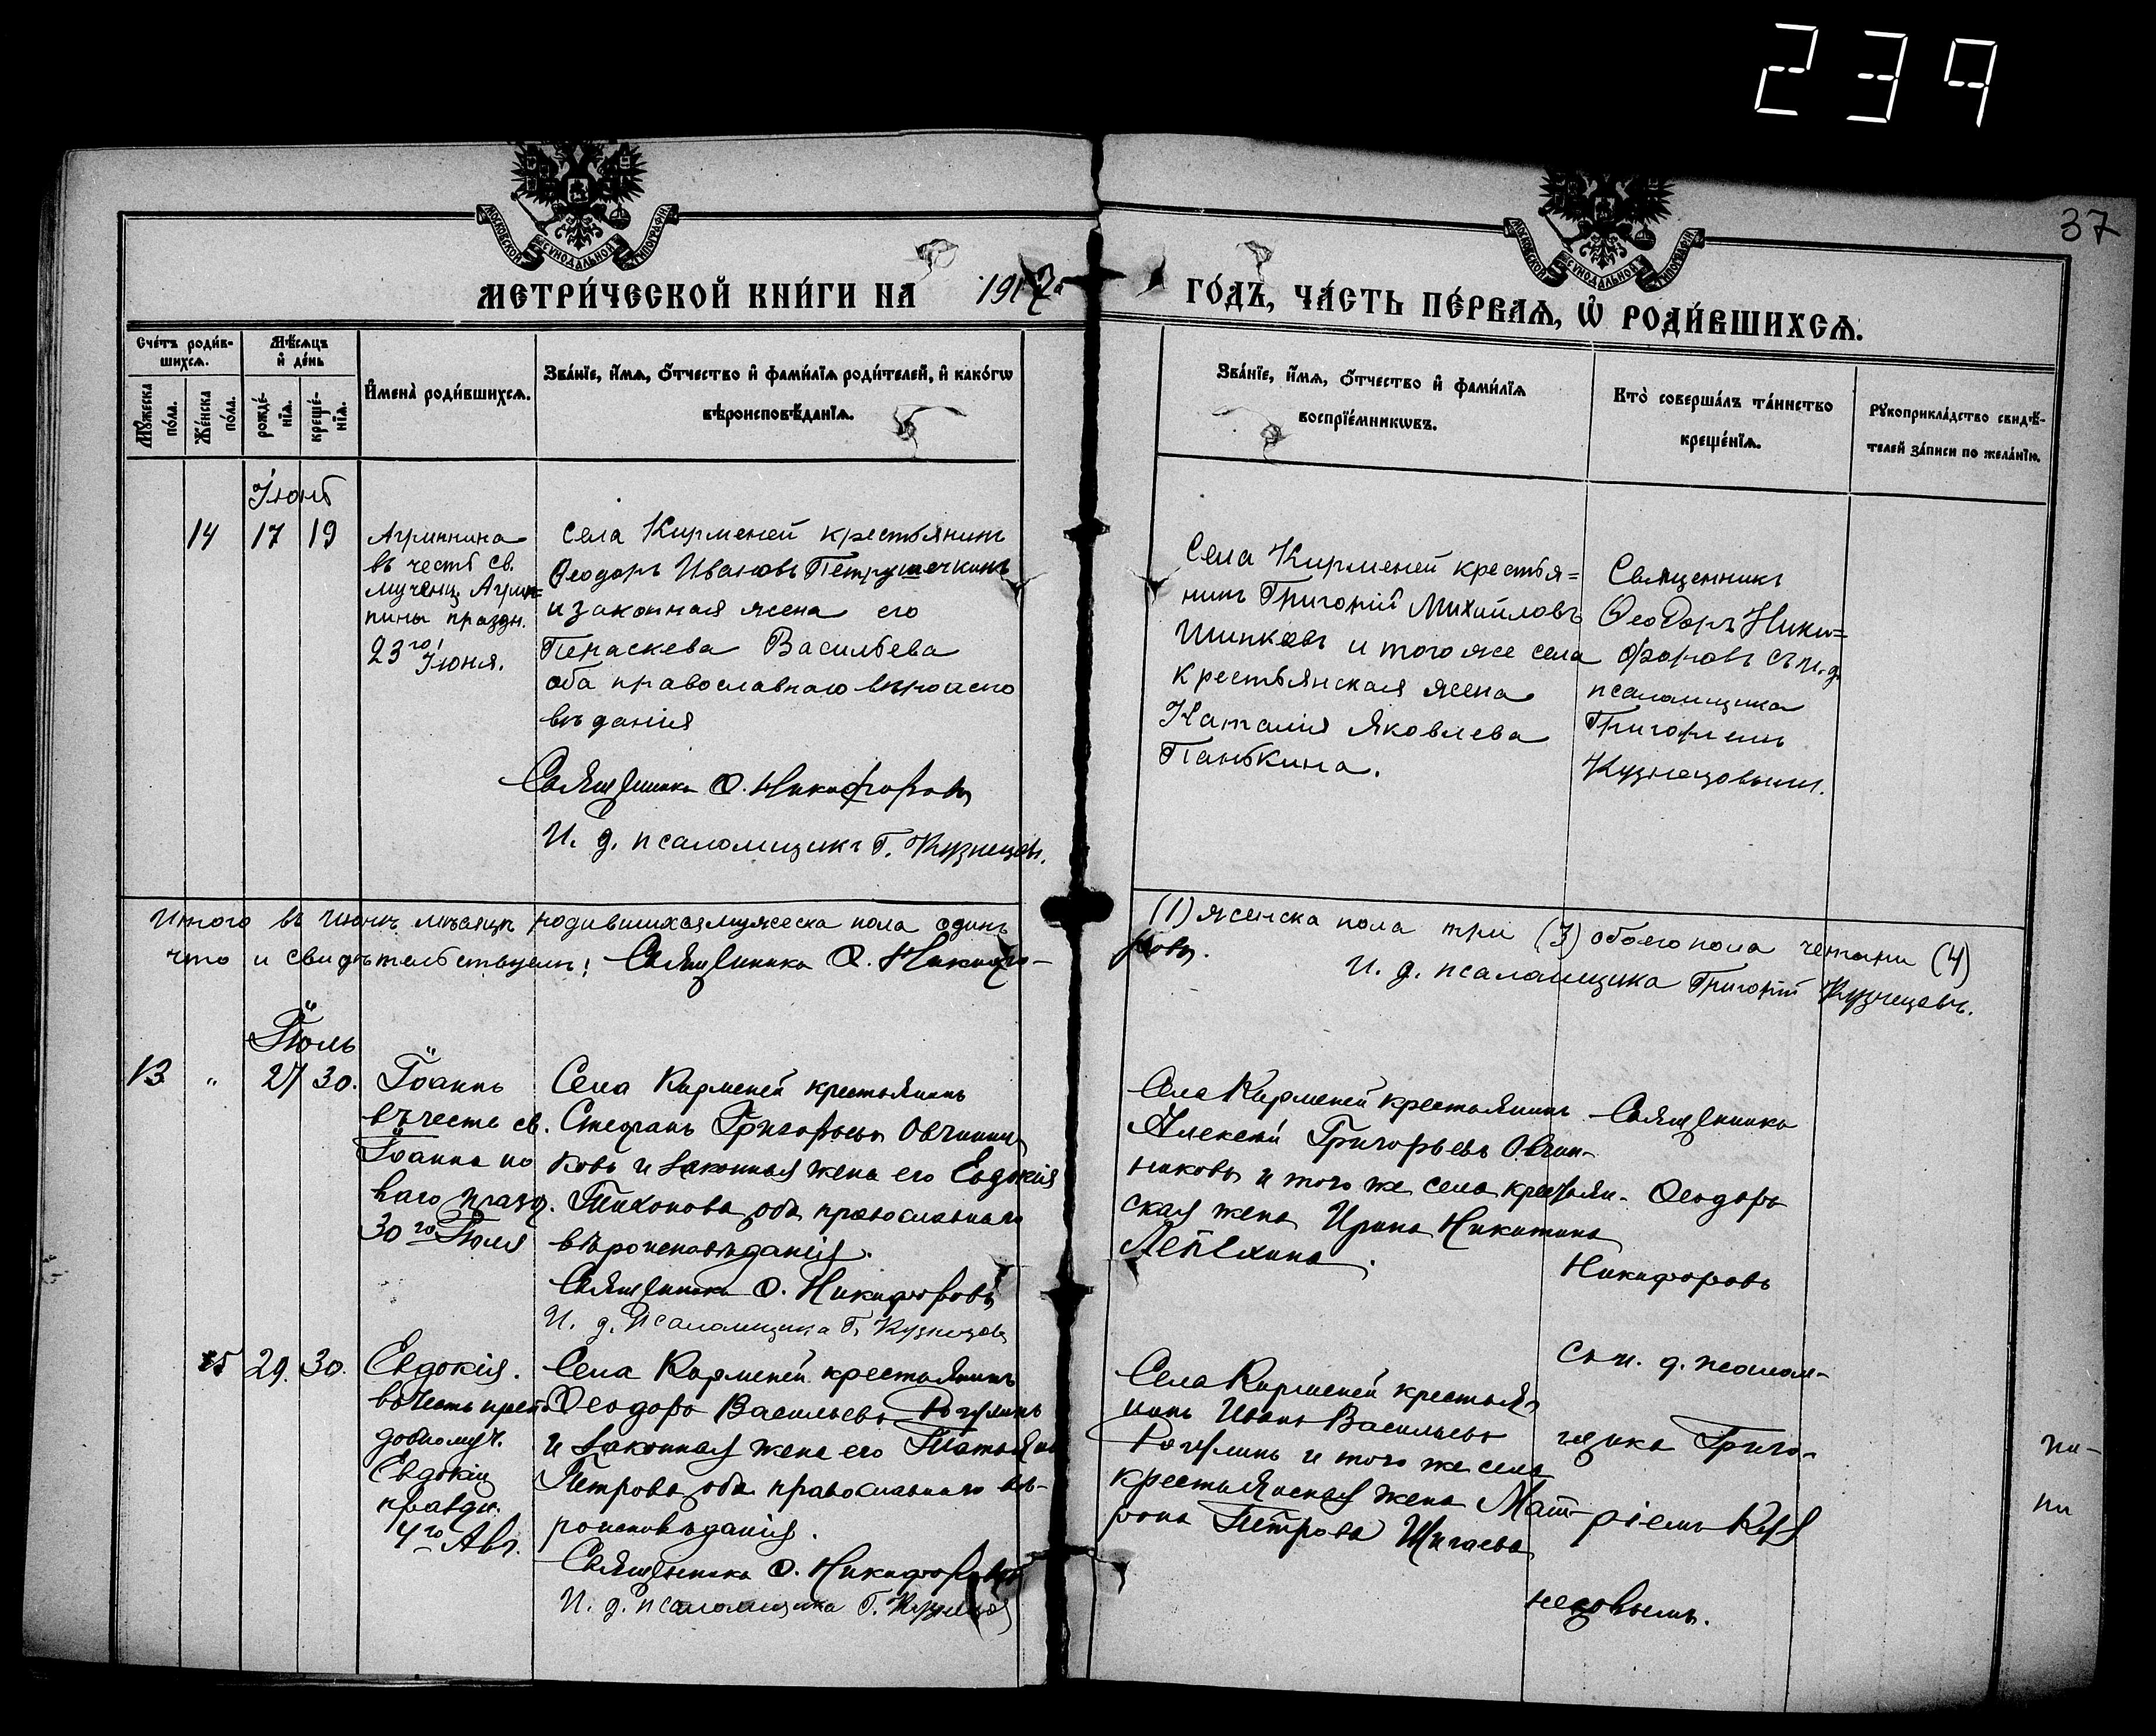 239
37
МОСКОВСКОЙ СѴНОДАЛЬНОЙ ТИПОГРАФІИ
МОСКОВСКОЙ СѴНОДАЛЬНОЙ ТИПОГРАФІИ
МЕТРИ́ЧЕСКОЙ КНИ́ГИ НА
ГО́ДЪ, ЧА́СТЬ ПЕ́РВАѦ, Ѡ҆ РОДИ́ВШИХСѦ.
Сче́тъ роди́в-
шихсѧ.
Мѣ́сѧцъ
и҆ де́нь
Мꙋ́жеска
по́ла.
Же́нска
по́ла.
рожде́-
нїѧ.
креще́-
нїѧ.
И҆мена̀ роди́вшихсѧ.
Зва́нїе, и҆́мѧ, ѻ҆́тчество и҆ фами́лїѧ роди́телей, и҆ како́гѡ
вѣроисповѣ́данїѧ.
Зва́нїе, и҆́мѧ, ѻ҆́тчество и҆ фами́лїѧ
воспрїе́мникѡвъ.
Кто̀ соверша́лъ та́инство
креще́нїѧ.
Рꙋкоприкла́дство свидѣ́-
телей за́писи по жела́нїю.
Іюнь
14 17 19
Агриппина
въ честь св.
мучениц. Агрип=
пины праздн.
23го Іюня.
Села Кирменей крестьянинъ
Ѳеодоръ Ивановъ Петрушечкинъ
и законная жена его
Параскева Васильева
оба православнаго вѣроиспо
вѣданія
Священникъ Ѳ. Никифоровъ
И. д. псаломщика Г. Кузнецовъ.
Села Кирменей крестья=
нинъ Григорій Михайловъ
Шипковъ и того же села
крестьянская жена
Наталія Яковлева
Панькина.
Священникъ
Ѳеодоръ Ники=
форовъ съ и. д.
псаломщика
Григоріемъ
Кузнецовымъ.
Итого въ іюнѣ мѣсяцѣ родившихся мужеска пола одинъ
(1) женска пола три (3) обоего пола четыри (4)
что и свидѣтельствуемъ: Священникъ Ѳ. Никифо-
ровъ.
И. д. псаломщика Григорій Кузнецовъ.
Іюль
13 " 27 30.
Іоаннъ
въ честь св.
Іоанна но
ваго празд.
30го Іюля
Села Кирменей крестьянинъ
Стефанъ Григорьевъ Овчинни
ковъ и законная жена его Евдокія
Тихонова оба православнаго
вѣроисповѣданія.
Священникъ Ѳ. Никифоровъ
И. д. псаломщика Г. Кузнецовъ
Села Кирменей крестьянинъ
Алексѣй Григорьевъ Овчин-
никовъ и того же села крестьян-
ская жена Ирина Никитина
Лепехина.
Священникъ
Ѳеодоръ
Никифоровъ
съ и. д. псалом-
щика Григо-
ріемъ Куз
нецовымъ.
15 29. 30.
Евдокія.
въ честь препо
добномуч.
Евдокіи
праздн.
4го Авг.
Села Кирменей крестьянинъ
Ѳеодоръ Васильевъ Рогулинъ
и законная жена его Татьяна
Петрова оба православнаго вѣ-
роисповѣданія.
Священникъ Ѳ. Никифоровъ
И. д. псаломщика Г. Кузнецовъ
Села Кирменей крестья-
нинъ Иванъ Васильевъ
Рогулинъ и того же села
крестьянская жена Мат-
рона Петрова Шигаева